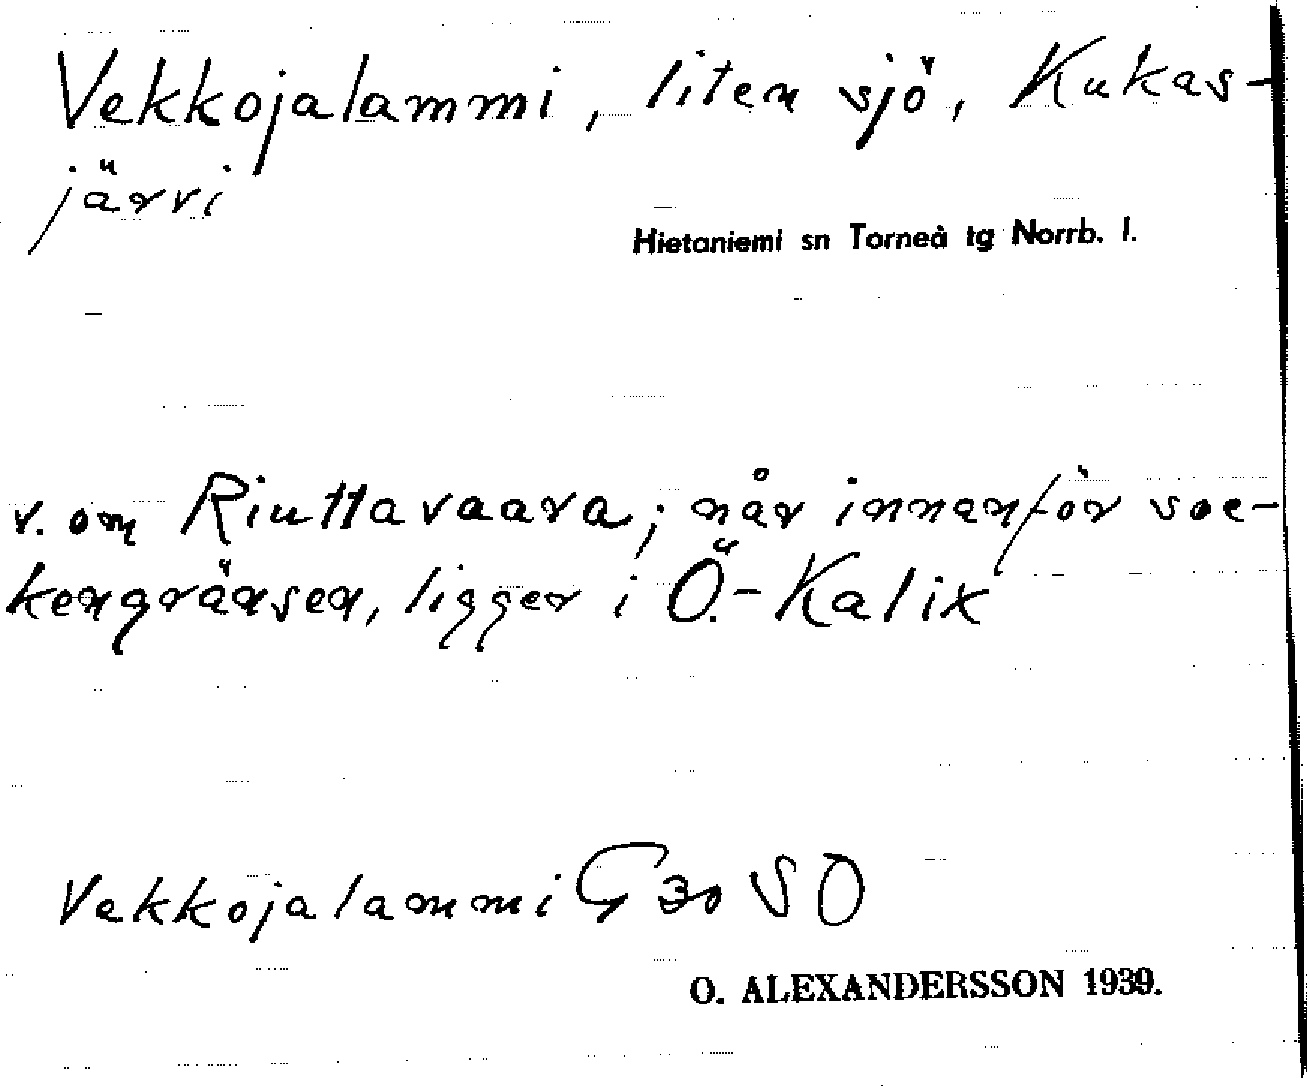 Vekkojalammi, liten sjö, Kukas-
järvi
Hietaniemi sn Torneå tg Norrb. l.
v. om Riuttavaara; når innanför soc-
kengränsen, ligger i Ö.-Kalix
Vekkojalammi G 30 SO
O. ALEXANDERSSON 1939.